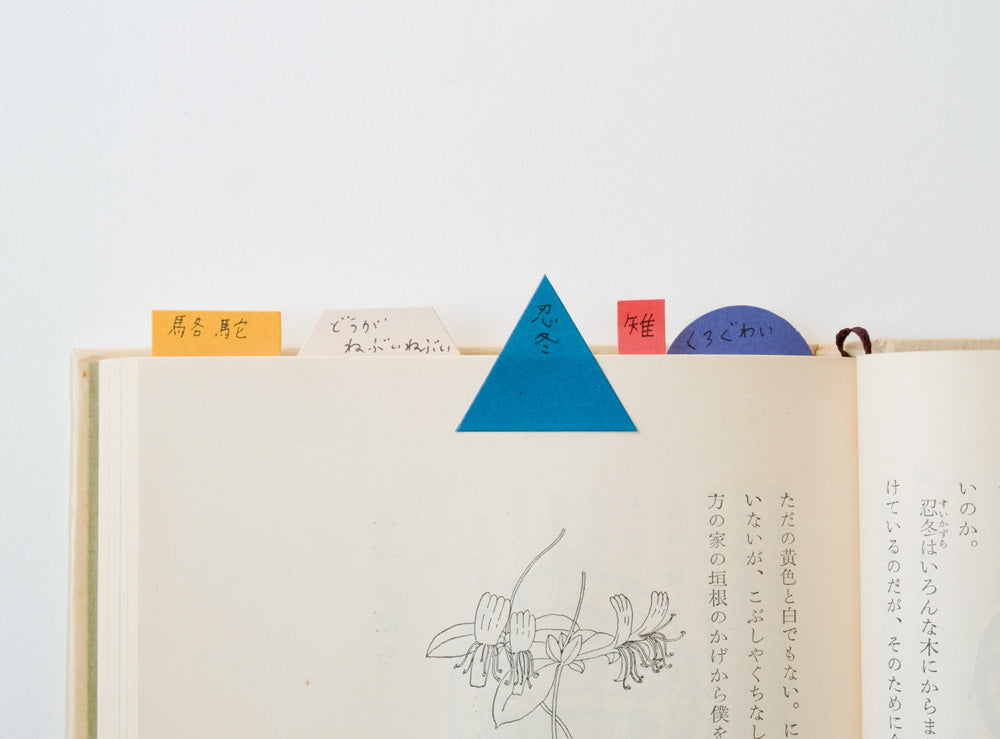 駱駝
どうが
ねぶいねぶい
忍冬
雉
くろぐわい
いのか。
忍冬はいろんな木にからま
すいかずら
けているのだが、そのために
ただの黄色と白でもない。に
いないが、こぶしやくちなし
方の家の垣根のかげから僕を